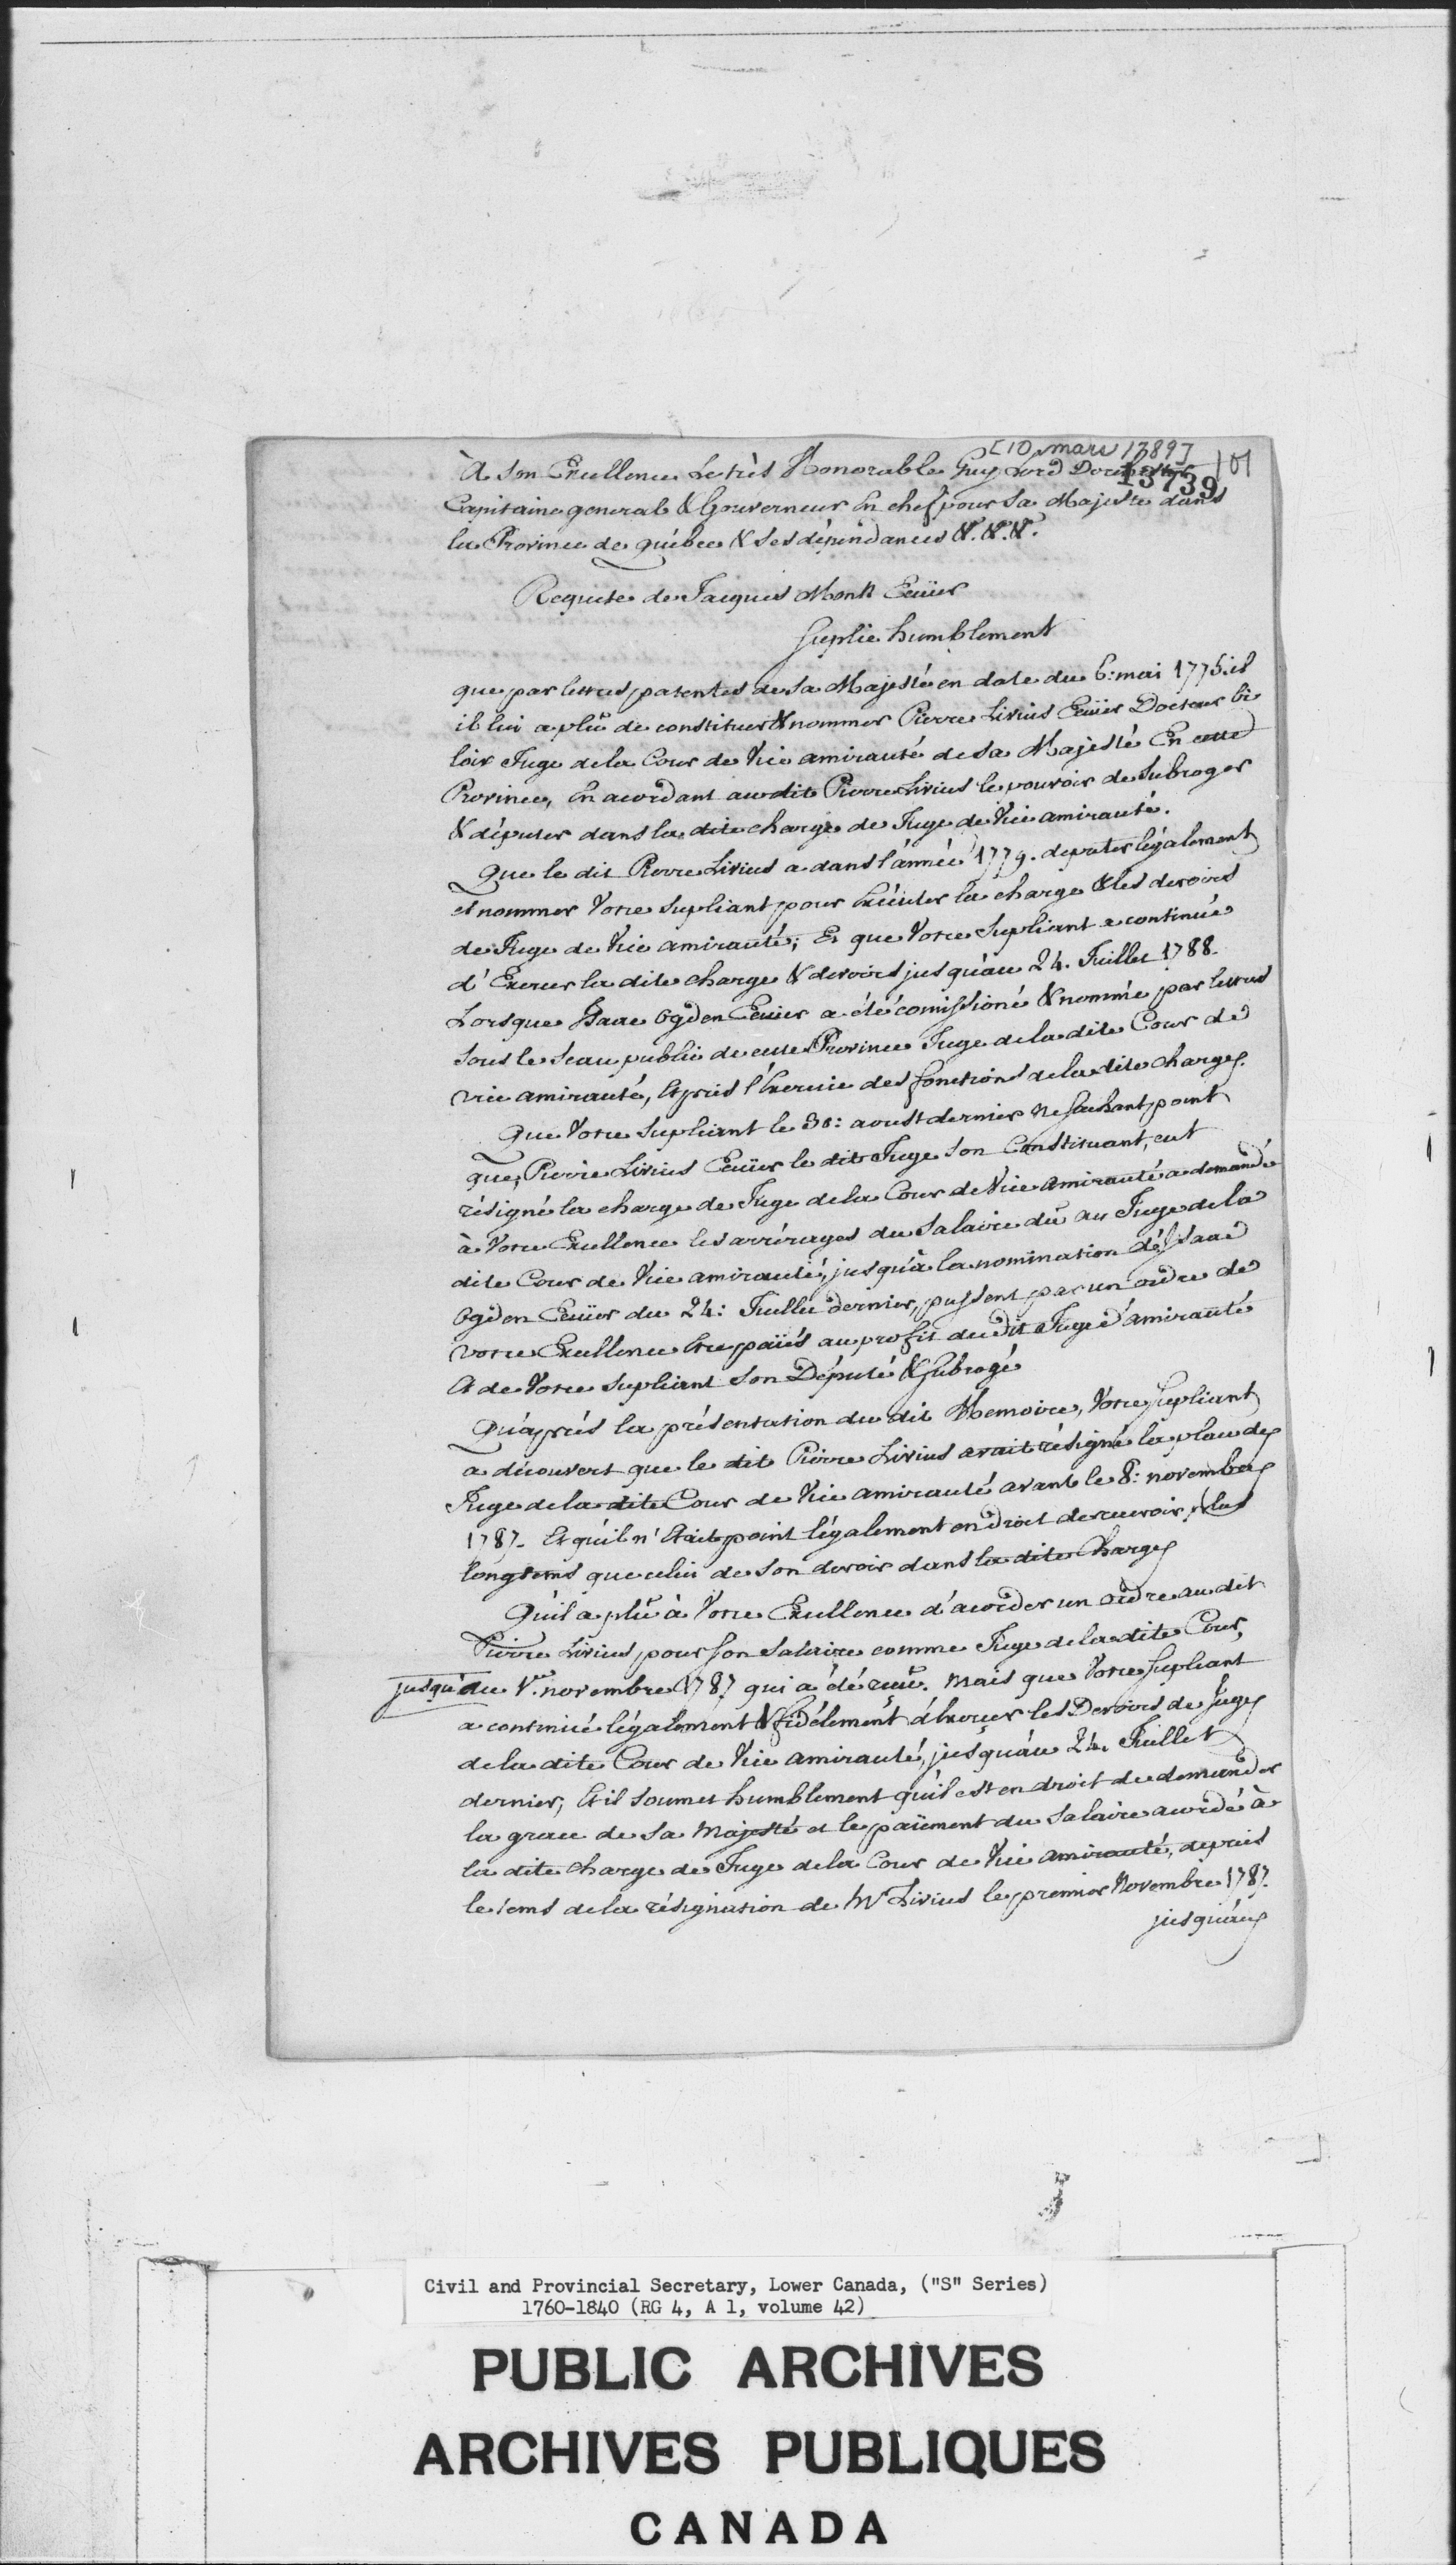 [10 mars 1789]
À Son Excellence Le très Honorable Guy Lord Dorchester
13739
101
Capitaine general & Gouverneur En chef pour Sa Majesté dans
la Province de québec & Ses dépendances &c. &c. &c.
Requête de Jacques Monk Ecuïer
Suplie humblement
que par lettres patentes de Sa Majesté en date du 6: mai 1775. il
il lui a plû de constituer & nommer Pierre Livius Ecuïer Docteur Ez
loix Juge de la Cour de Vice amirauté de Sa Majesté En cette
Province, En acordant au dit Pierre Livius le pouvoir de Subroger
& députer dans la dite charge de Juge de Vice amirauté.
Que le dit Pierre Livius a dans l'année 1779. deputer légalement
et nommer Votre Supliant pour Exécuter la charge & les devoirs
de Juge de Vice amirauté; Et que Votre Supliant a continué
d'Exercer la dite charge & devoirs jusqu'au 24. Juillet 1788.
Lorsque Isaac Ogden Ecuier a été comissioné & nommé par lettres
Sous le Seau public de cette Province Juge de la dite Cour de
vice amirauté, Et pris l'Exercice des fonctions de la dite charge.
Que Votre Supliant le 30: aoust dernier ne Sachant point
que, Pierre Livius Ecuïer le dit Juge Son Constituant, eut
résigné la charge de Juge de la Cour de Vice amirauté a demandé
à Votre Excellence les arrérages du Salaire dû au Juge de la
dite Cour de Vice amirauté, jusqu'à la nomination d'Isaac
Ogden Ecuïer du 24: Juillet dernier, pussent par un ordre de
votre Excellence Etre païés au profit du dit Juge d'amirauté
Et de Votre Supliant Son Député & Subrogé
Qu'après la présentation du dit Memoire, Votre Supliant
a découvert que le dit Pierre Livius avait résigné la place de
Juge de la dite Cour de Vice amirauté avant le 8: novembre
1787. Et qu'il n'Etait point légalement en droit de recevoir plus
longtems que celui de Son devoir dans la dite Charge
Qu'il a plû à Votre Excellence d'acorder un ordre au dit
Pierre Livius pour Son Salaire comme Juge de la dite Cour,
jusqu'au 1er. novembre 1787 qui a été reçu. Mais que Votre Supliant
a continué légalement & fidélement d'Exercer les Devoirs de Juge
de la dite Cour de Vice amirauté, jusqu'au 24. Juillet
dernier, Et il Soumet humblement qu'il est en droit de demander
la grace de Sa Majesté et le païement du Salaire acordé à
la dite charge de Juge de la Cour de Vice amirauté, depuis
le tems de la résignation de Mr Livius le premier Novembre 1787.
jusqu'au
Civil and Provincial Secretary, Lower Canada, ("S" Series)
1760-1840 (RG 4, A 1, volume 42)
PUBLIC ARCHIVES
ARCHIVES PUBLIQUES
CANADA